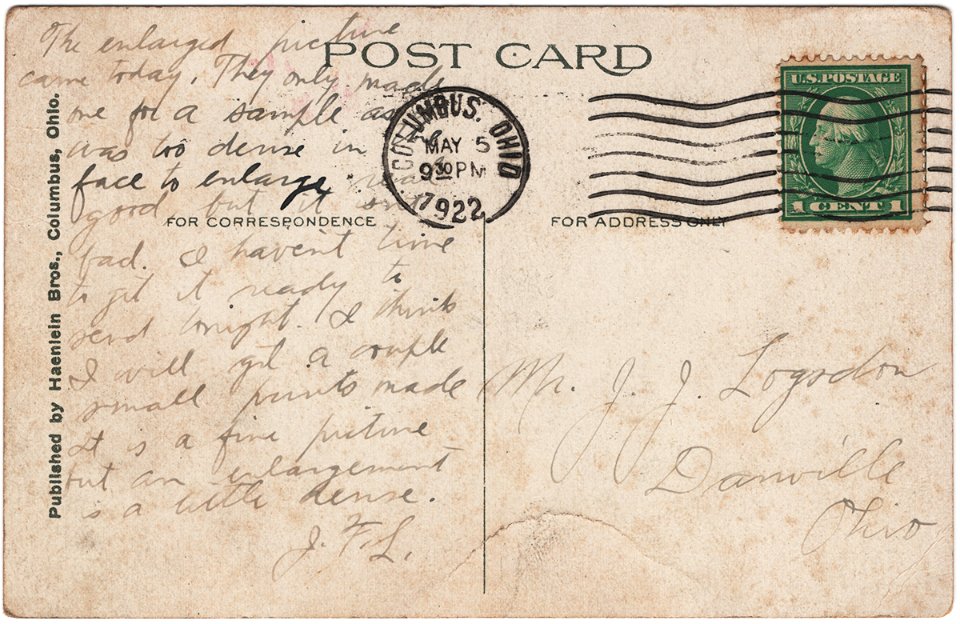 POST CARD
The enlarged picture
came today. They only made
me for a sample as
was too dense in
face to enlarge
good but it isn't
bad. I haven't time
to get it ready to
send tonight. I think
I will get a couple
small prints made
It is a fine picture
but an enlargement
is a little dense.
J. F. L.
FOR CORRESPONDENCE
Published by Haenlein Bros., Columbus, Ohio.
COLUMBUS, OHIO
MAY 5
9 30 PM
1922
U.S. POSTAGE
1 CENT 1
FOR ADDRESS ONLY
Mr. J. J. Logsdon
Danville
Ohio